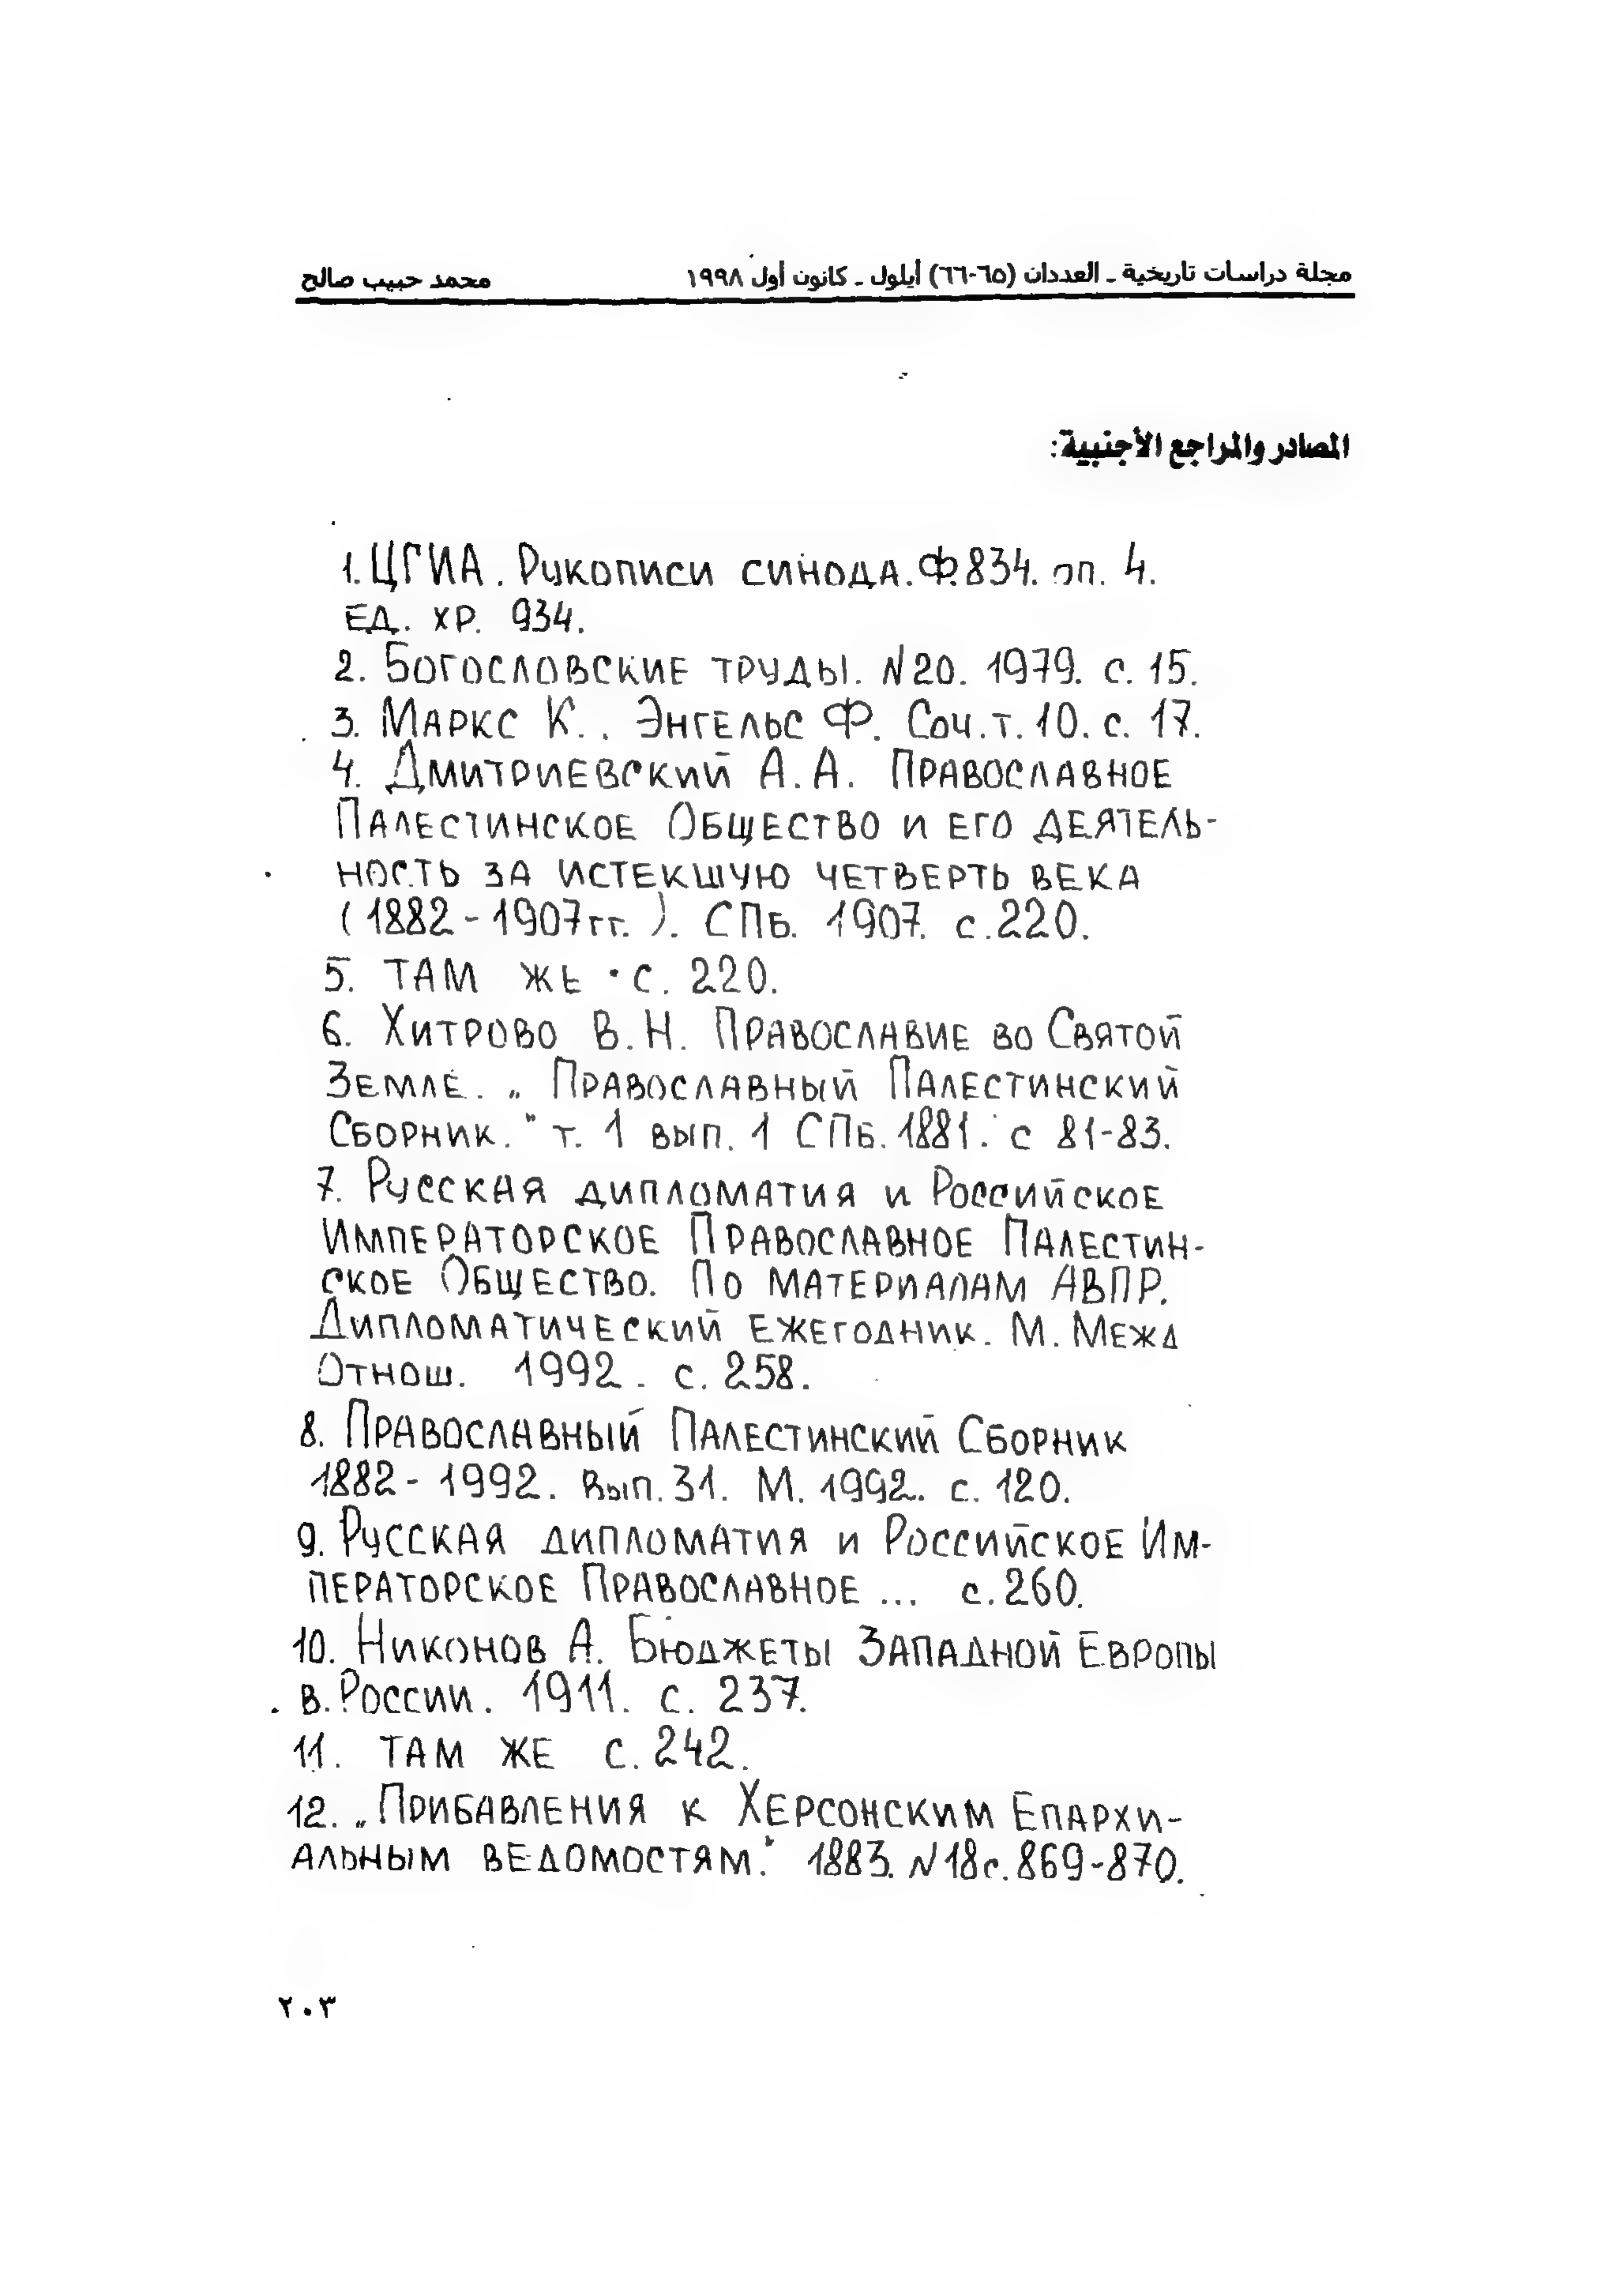 مجلة دراسات تاريخية ـ العددان (٦٥-٦٦) أيلول ـ كانون أول ١٩٩٨ محمد حبيب صالح
المصادر والمراجع الأجنبية:
1. ЦГИА. Рукописи синода. Ф.834. оп. 4.
ед. хр. 934.
2. Богословские труды. N20. 1979. с. 15.
3. Маркс К.. Энгельс Ф. Соч. т. 10. с. 17.
4. Дмитриевский А.А. Православное
Палестинское Общество и его деятель-
ность за истекшую четверть века
(1882-1907гг.). СПб. 1907. с.220.
5. Там же. с. 220.
6. Хитрово В.Н. Православие во Святой
Земле. „Православный Палестинский
Сборник." т. 1 вып. 1 СПб. 1881. с 81-83.
7. Русская дипломатия и Российское
Императорское Православное Палестин-
ское Общество. По материалам АВПР.
Дипломатический ежегодник. М. Межд
Отнош. 1992. с. 258.
8. Православный Палестинский Сборник
1882-1992. Вып. 31. М. 1992. с. 120.
9. Русская дипломатия и Российское Им-
ператорское Православное ... с. 260.
10. Никонов А. Бюджеты Западной Европы
в. России. 1911. с. 237.
11. Там же с. 242.
12. „Прибавления к Херсонским Епархи-
альным ведомостям." 1883. N18 с. 869-870.
٢٠٣